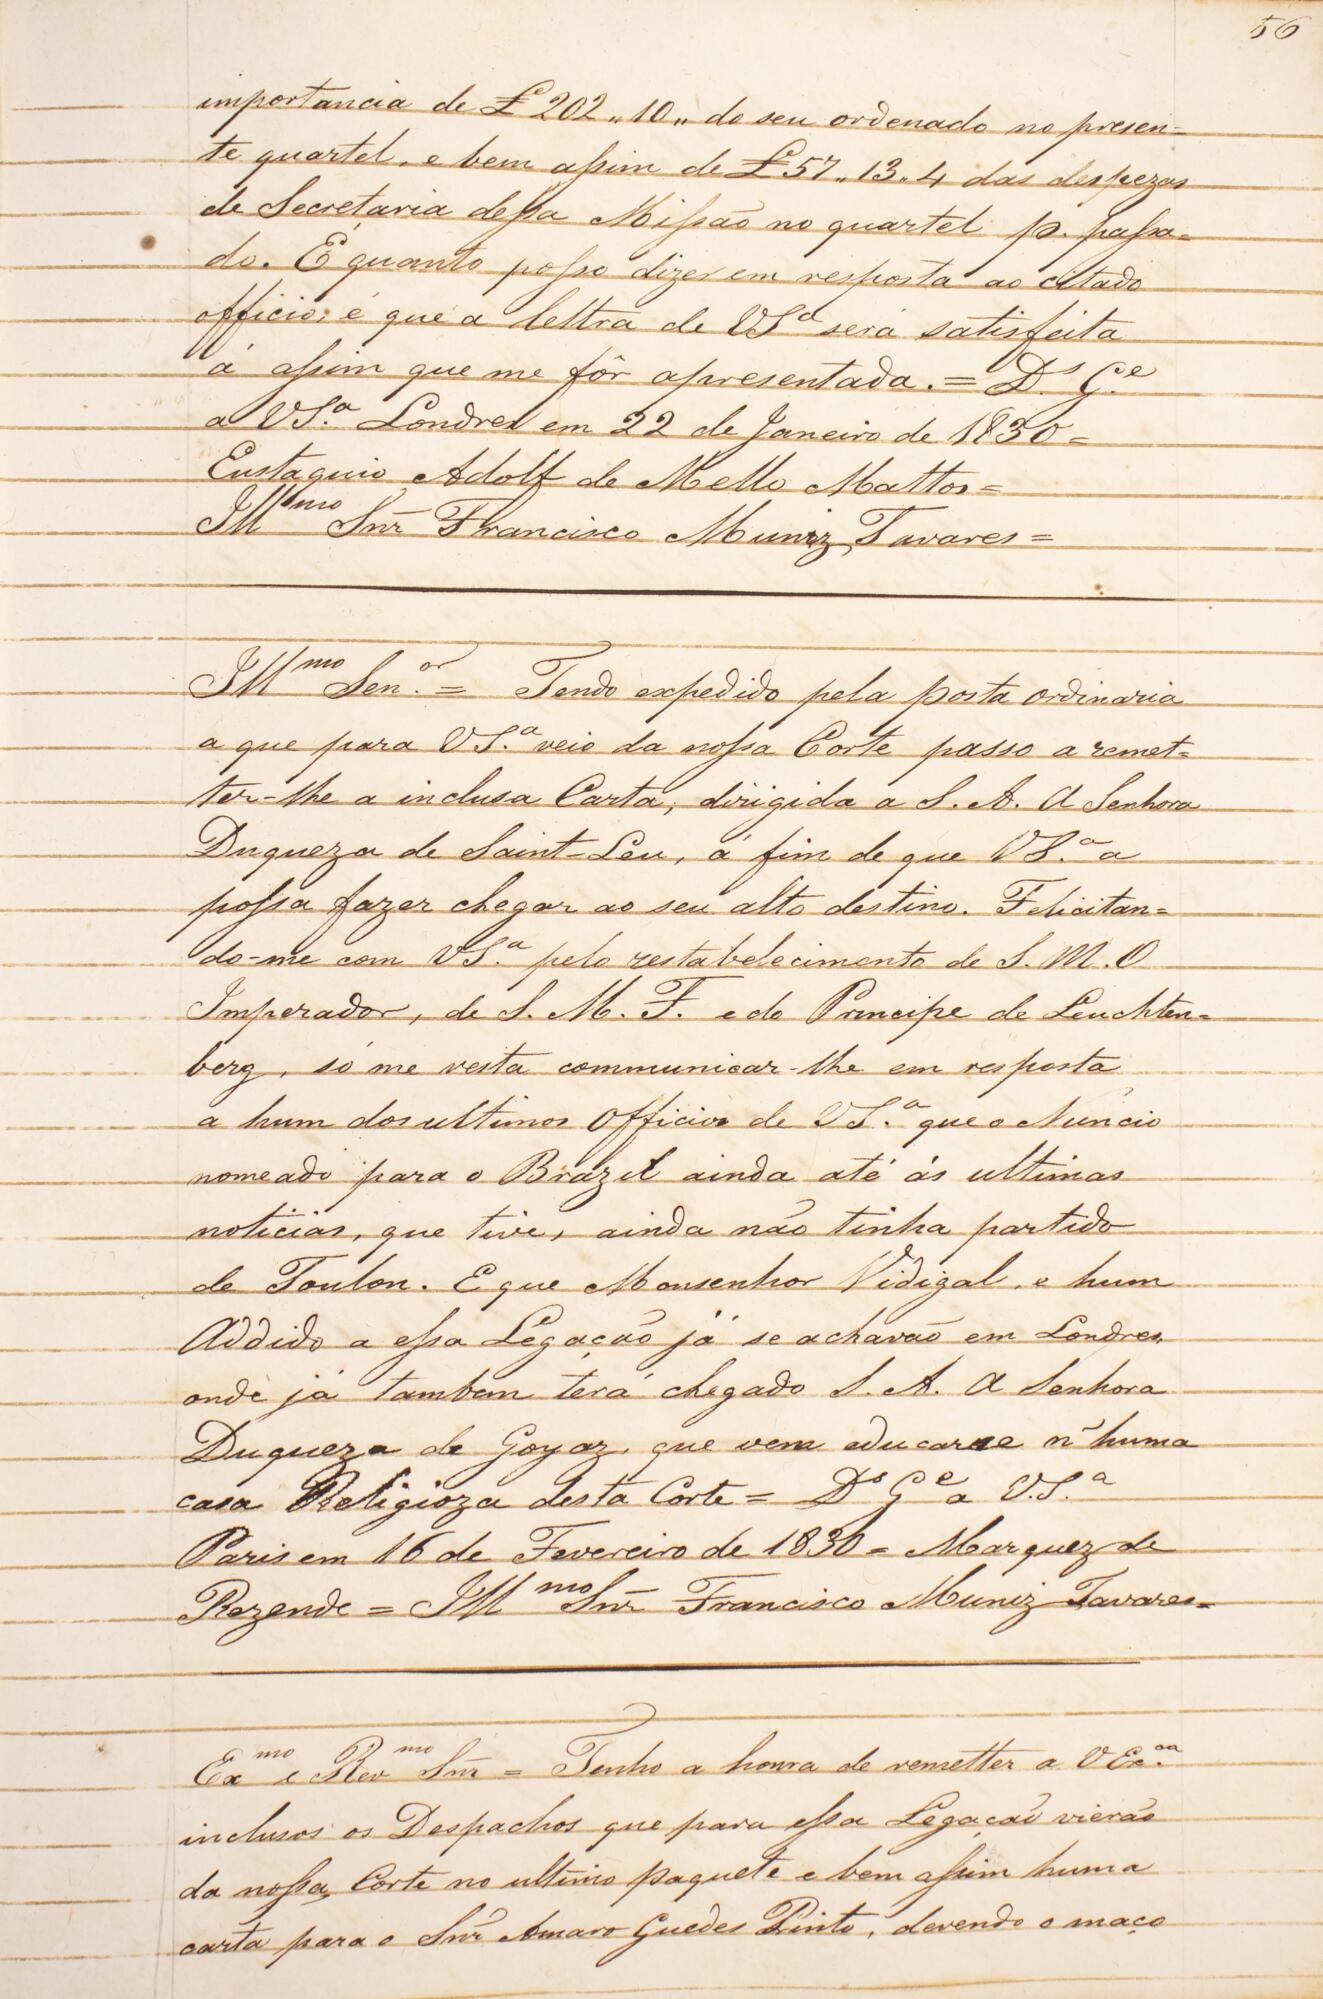 56
importancia de £ 202 „ 10 „ do seu ordenado no presen=
te quartel, e bem assim de £ 57 „ 13 „ 4 das despezas
de Secretaria dessa Missão no quartel p. passa=
do. É quanto posso dizer em resposta ao citado
officio, é que a lettra de VSª será satisfeita
á assim que me fôr apresentada. = D.s G.e
a VS.ª Londres em 22 de Janeiro de 1830 =
Eustaquio Adolf de Mello Mattos =
Illmo Snr Francisco Muniz Tavares =
Illmo Sen.or = Tendo expedido pela posta ordinaria
a que para VS.ª veio da nossa Corte passo a remet=
ter-lhe a inclusa Carta, dirigida a S. A. A Senhora
Duqueza de Saint-Leu, á fim de que VS.ª a
possa fazer chegar ao seu alto destino. Felicitan=
do-me com VS.ª pelo restabelecimento de S. M. O
Imperador, de S. M. F. e do Principe de Leuchten=
berg, só me resta communicar-lhe em resposta
a hum dos ultimos Officios de VS.ª que o Nuncio
nomeado para o Brazil ainda até ás ultimas
noticias, que tive, ainda não tinha partido
de Toulon. E que Monsenhor Vidigal, e hum
Addido a essa Legação já se achavão em Londres,
onde já tambem terá chegado S. A. A Senhora
Duqueza de Goyaz, que vem educarse n'huma
casa Religioza desta Corte = Ds Ge a V.S.ª
Paris em 16 de Fevereiro de 1830 = Marquez de
Rezende = Illmo Snr Francisco Muniz Tavares =
Exmo e Revmo Snr = Tenho a honra de remetter a V Ex.cia
inclusos os Despachos que para essa Legação vierão
da nossa Corte no ultimo paquete e bem assim huma
carta para o Snr Amaro Guedes Pinto, devendo o maço